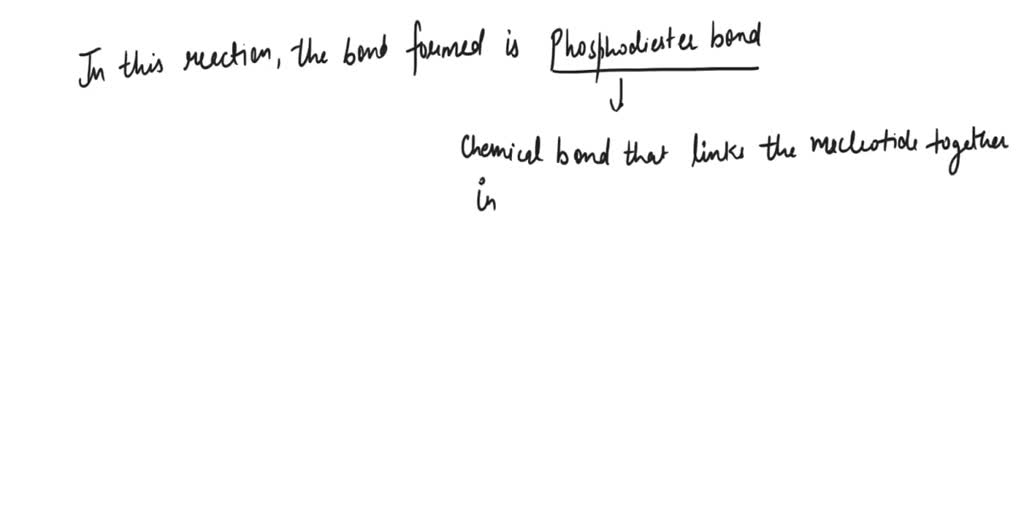 In this reaction, the bond formed is Phosphodiester bond
Chemical bond that links the nucleotide together
in